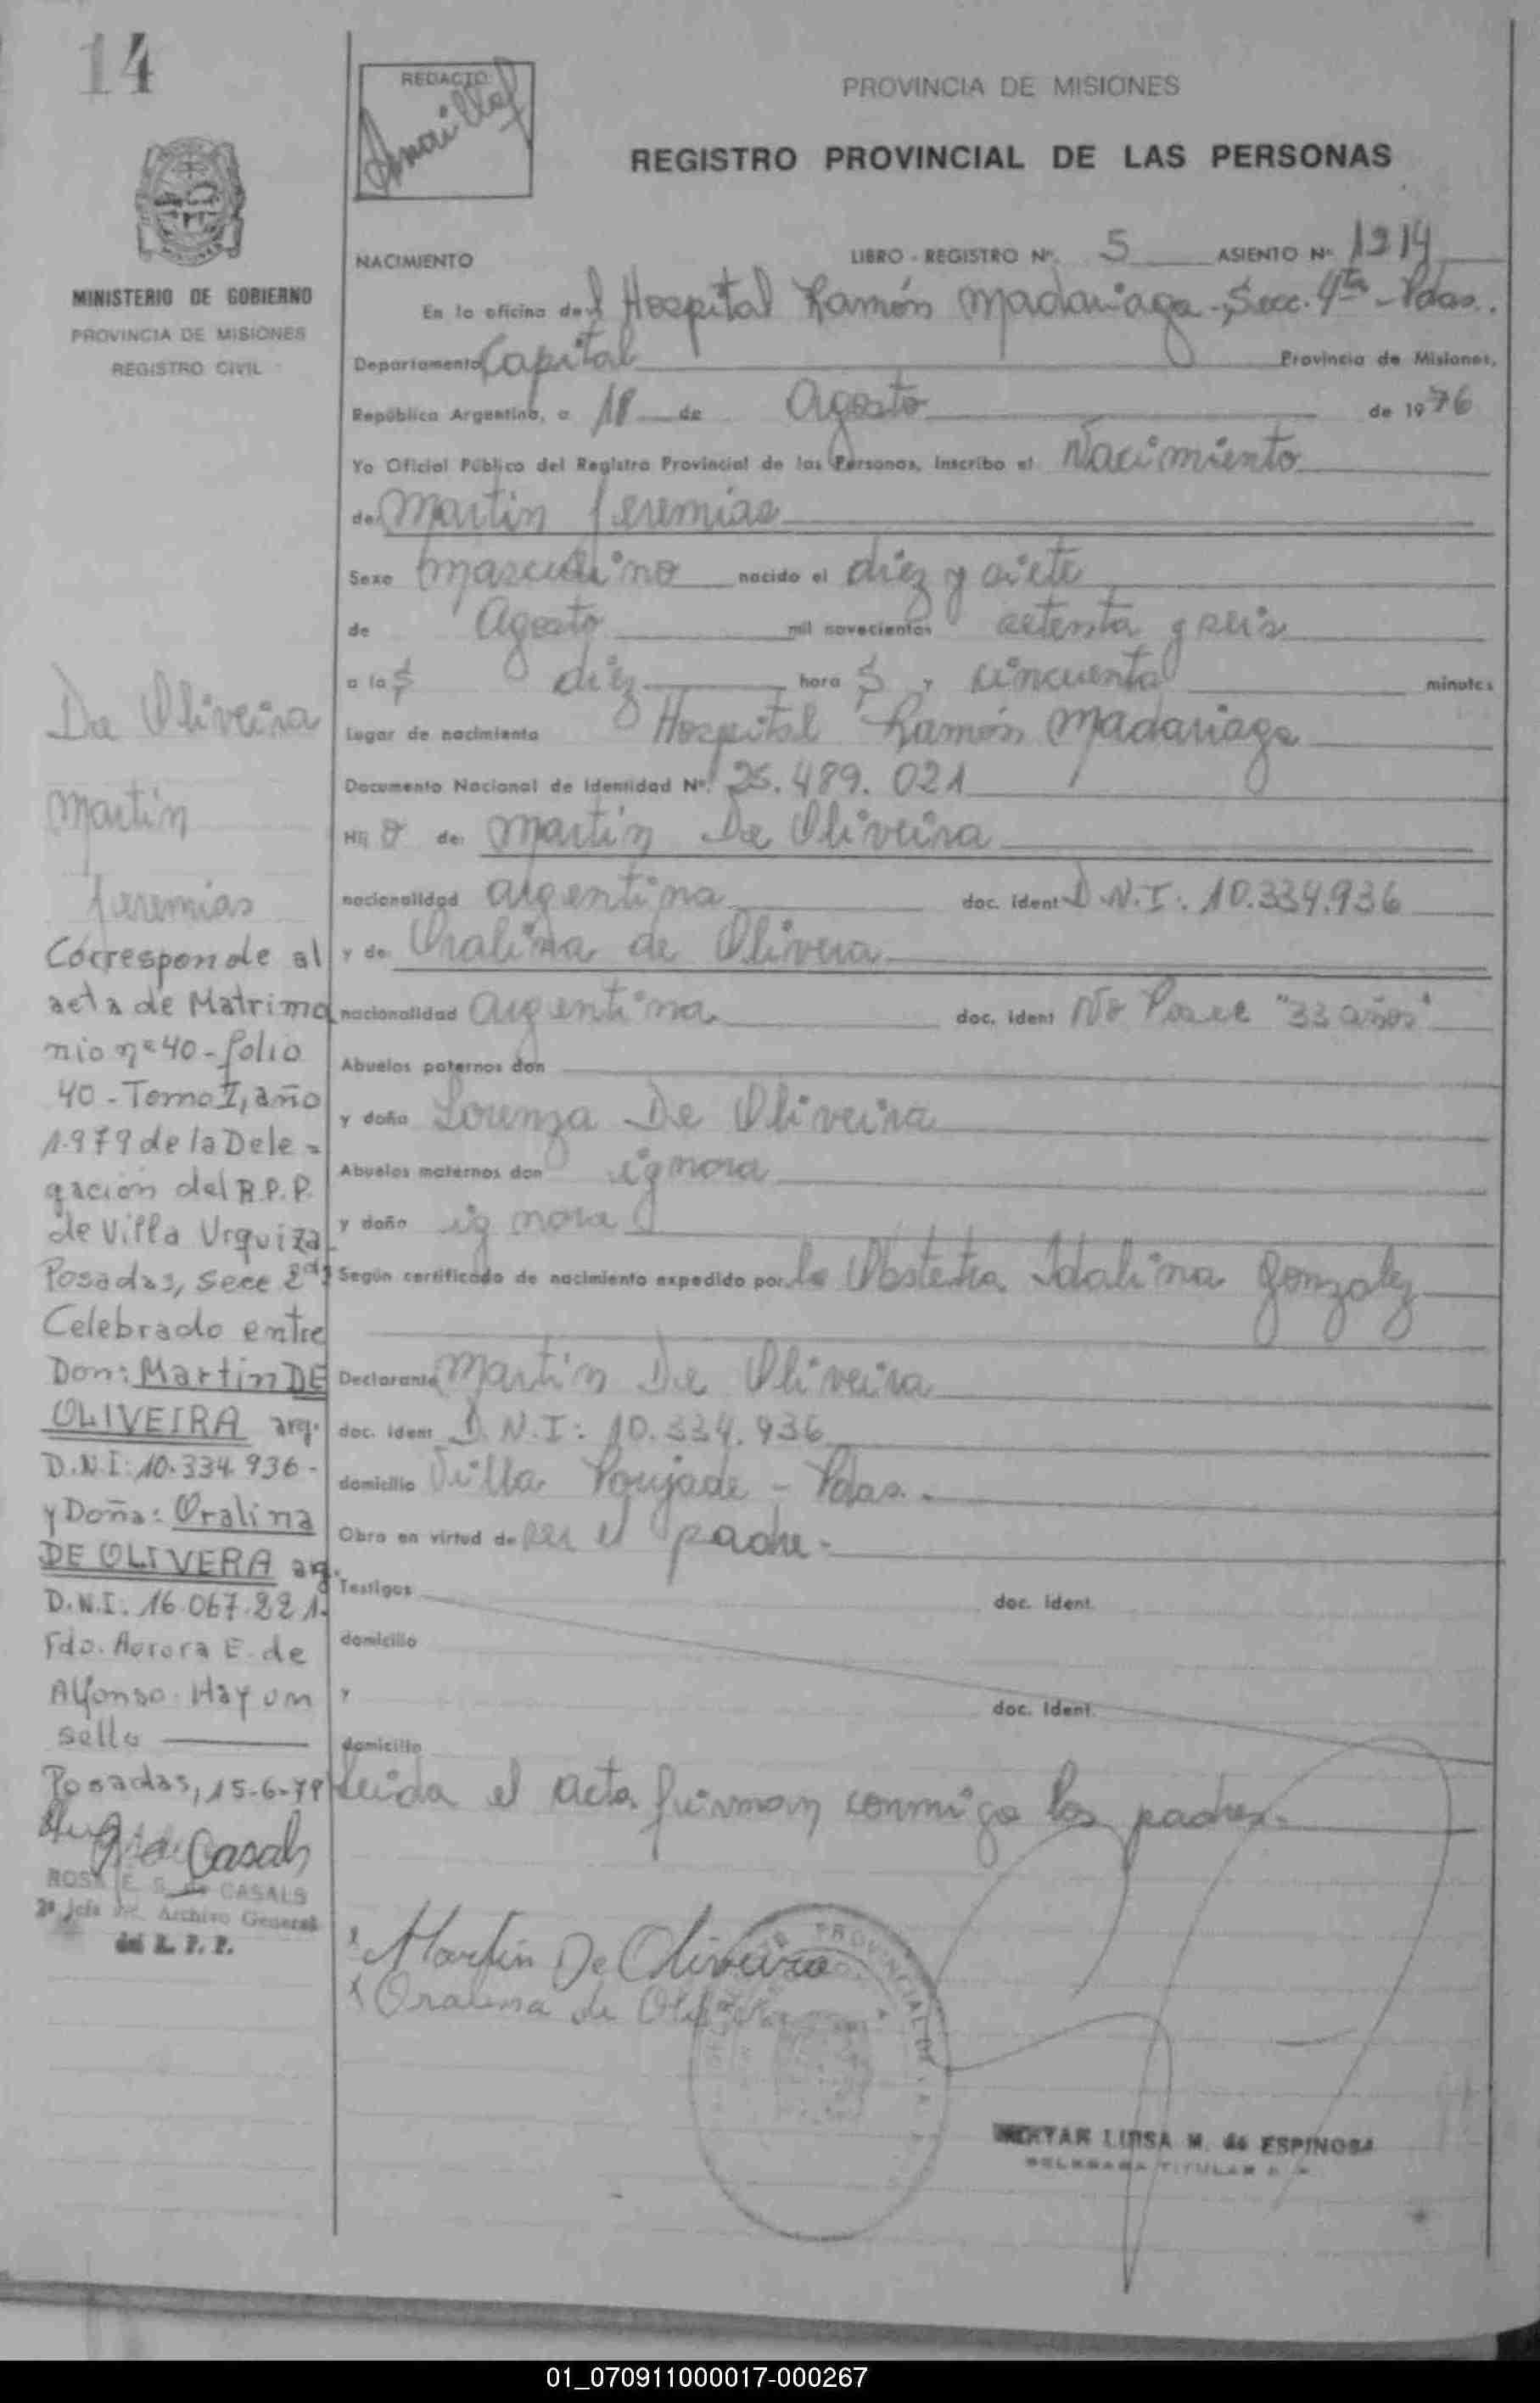 14
REDACTO
PROVINCIA DE MISIONES
REGISTRO PROVINCIAL DE LAS PERSONAS
MINISTERIO DE GOBIERNO
PROVINCIA DE MISIONES
REGISTRO CIVIL
NACIMIENTO LIBRO - REGISTRO Nº. 5 ASIENTO Nº 1214
En la oficina del Hospital Ramón Madariaga - Secc. 4ta - Pdas.
Departamento Capital Provincia de Misiones,
República Argentina, a 18 de Agosto de 1976
Yo Oficial Público del Registro Provincial de las Personas, inscribo el Nacimiento
de Martin Jeremias
Sexo masculino nacido el diez y siete
de Agosto mil novecientos setenta y seis
a las diez horas y cincuenta minutos
Lugar de nacimiento Hospital Ramón Madariaga
Documento Nacional de Identidad Nº. 25.489.021
Hijo de: Martin De Oliveira
nacionalidad argentina doc. ident D.N.I. 10.334.936
y de Oralina de Olivera
nacionalidad argentina doc. ident No Posee "33 años"
Abuelos paternos don
y doña Lorenza De Oliveira
Abuelos maternos don ignora
y doña ignora
Según certificado de nacimiento expedido por la Obstetra Idalina Gonzalez
Declarante Martin De Oliveira
doc. ident D.N.I: 10.334.936
domicilio Villa Poujade - Pdas.
Obra en virtud de ser el padre.
Testigos doc. ident.
domicilio
y doc. ident.
domicilio
Leida el acta firman conmigo los padres.
Martin De Oliveira
Oralina de Olivera
MIRTAR LUISA M. de ESPINOSA
DELEGADA TITULAR
De Oliveira
Martin
Jeremias
Corresponde al
acta de Matrimo
nio nº 40 - folio
40 - Tomo I, año
1.979 de la Dele-
gación del R.P.P.
de Villa Urquiza
Posadas, Secc 2da
Celebrado entre
Don: Martin DE
OLIVEIRA arg.
D.N.I: 10.334.936 -
y Doña: Oralina
DE OLIVERA arg.
D.N.I. 16.067.221.
Fdo. Aurora E. de
Alfonso. Hay un
sello
Posadas, 15-6-79
ROSA E. S. de CASALS
2º Jefe del Archivo General
del R. P. P.
01_070911000017-000267